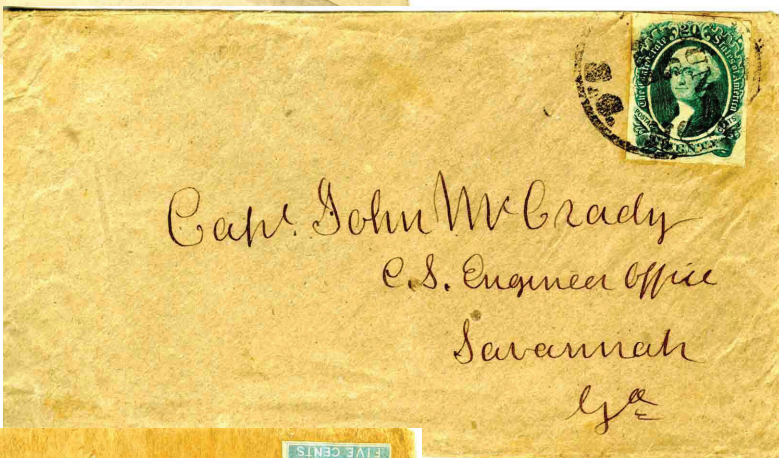 20
The Confederate States of America
CENTS
Capt. John McCrady
C.S. Engineer Office
Savannah
Ga
FIVE CENTS